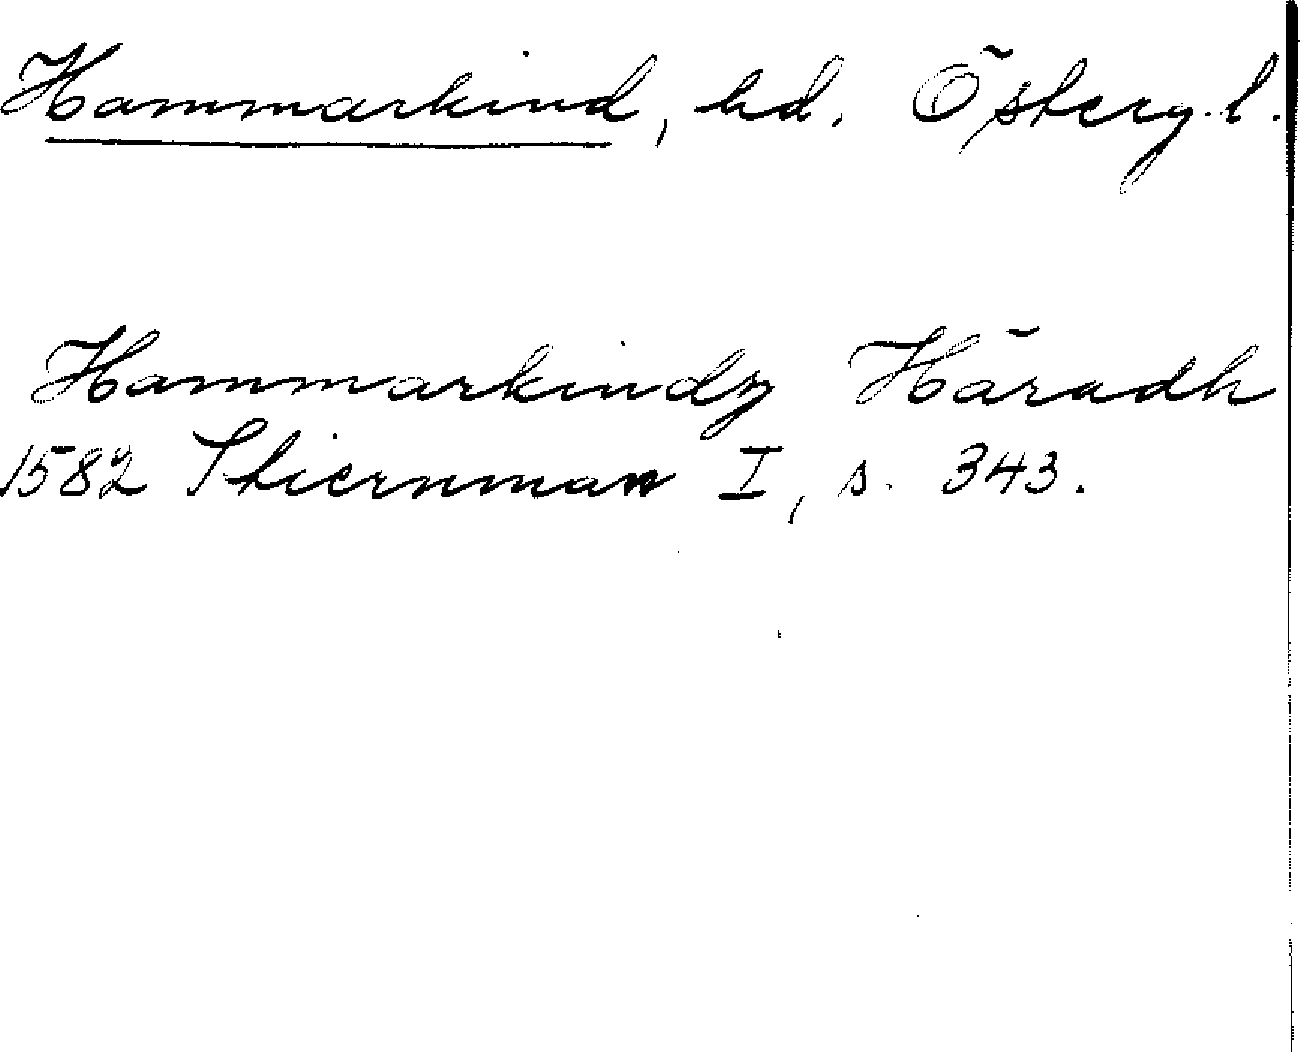 Hammarkind, hd. Östergl.
Hammarkindz Häradh
1582 Stiernman I, s. 343.